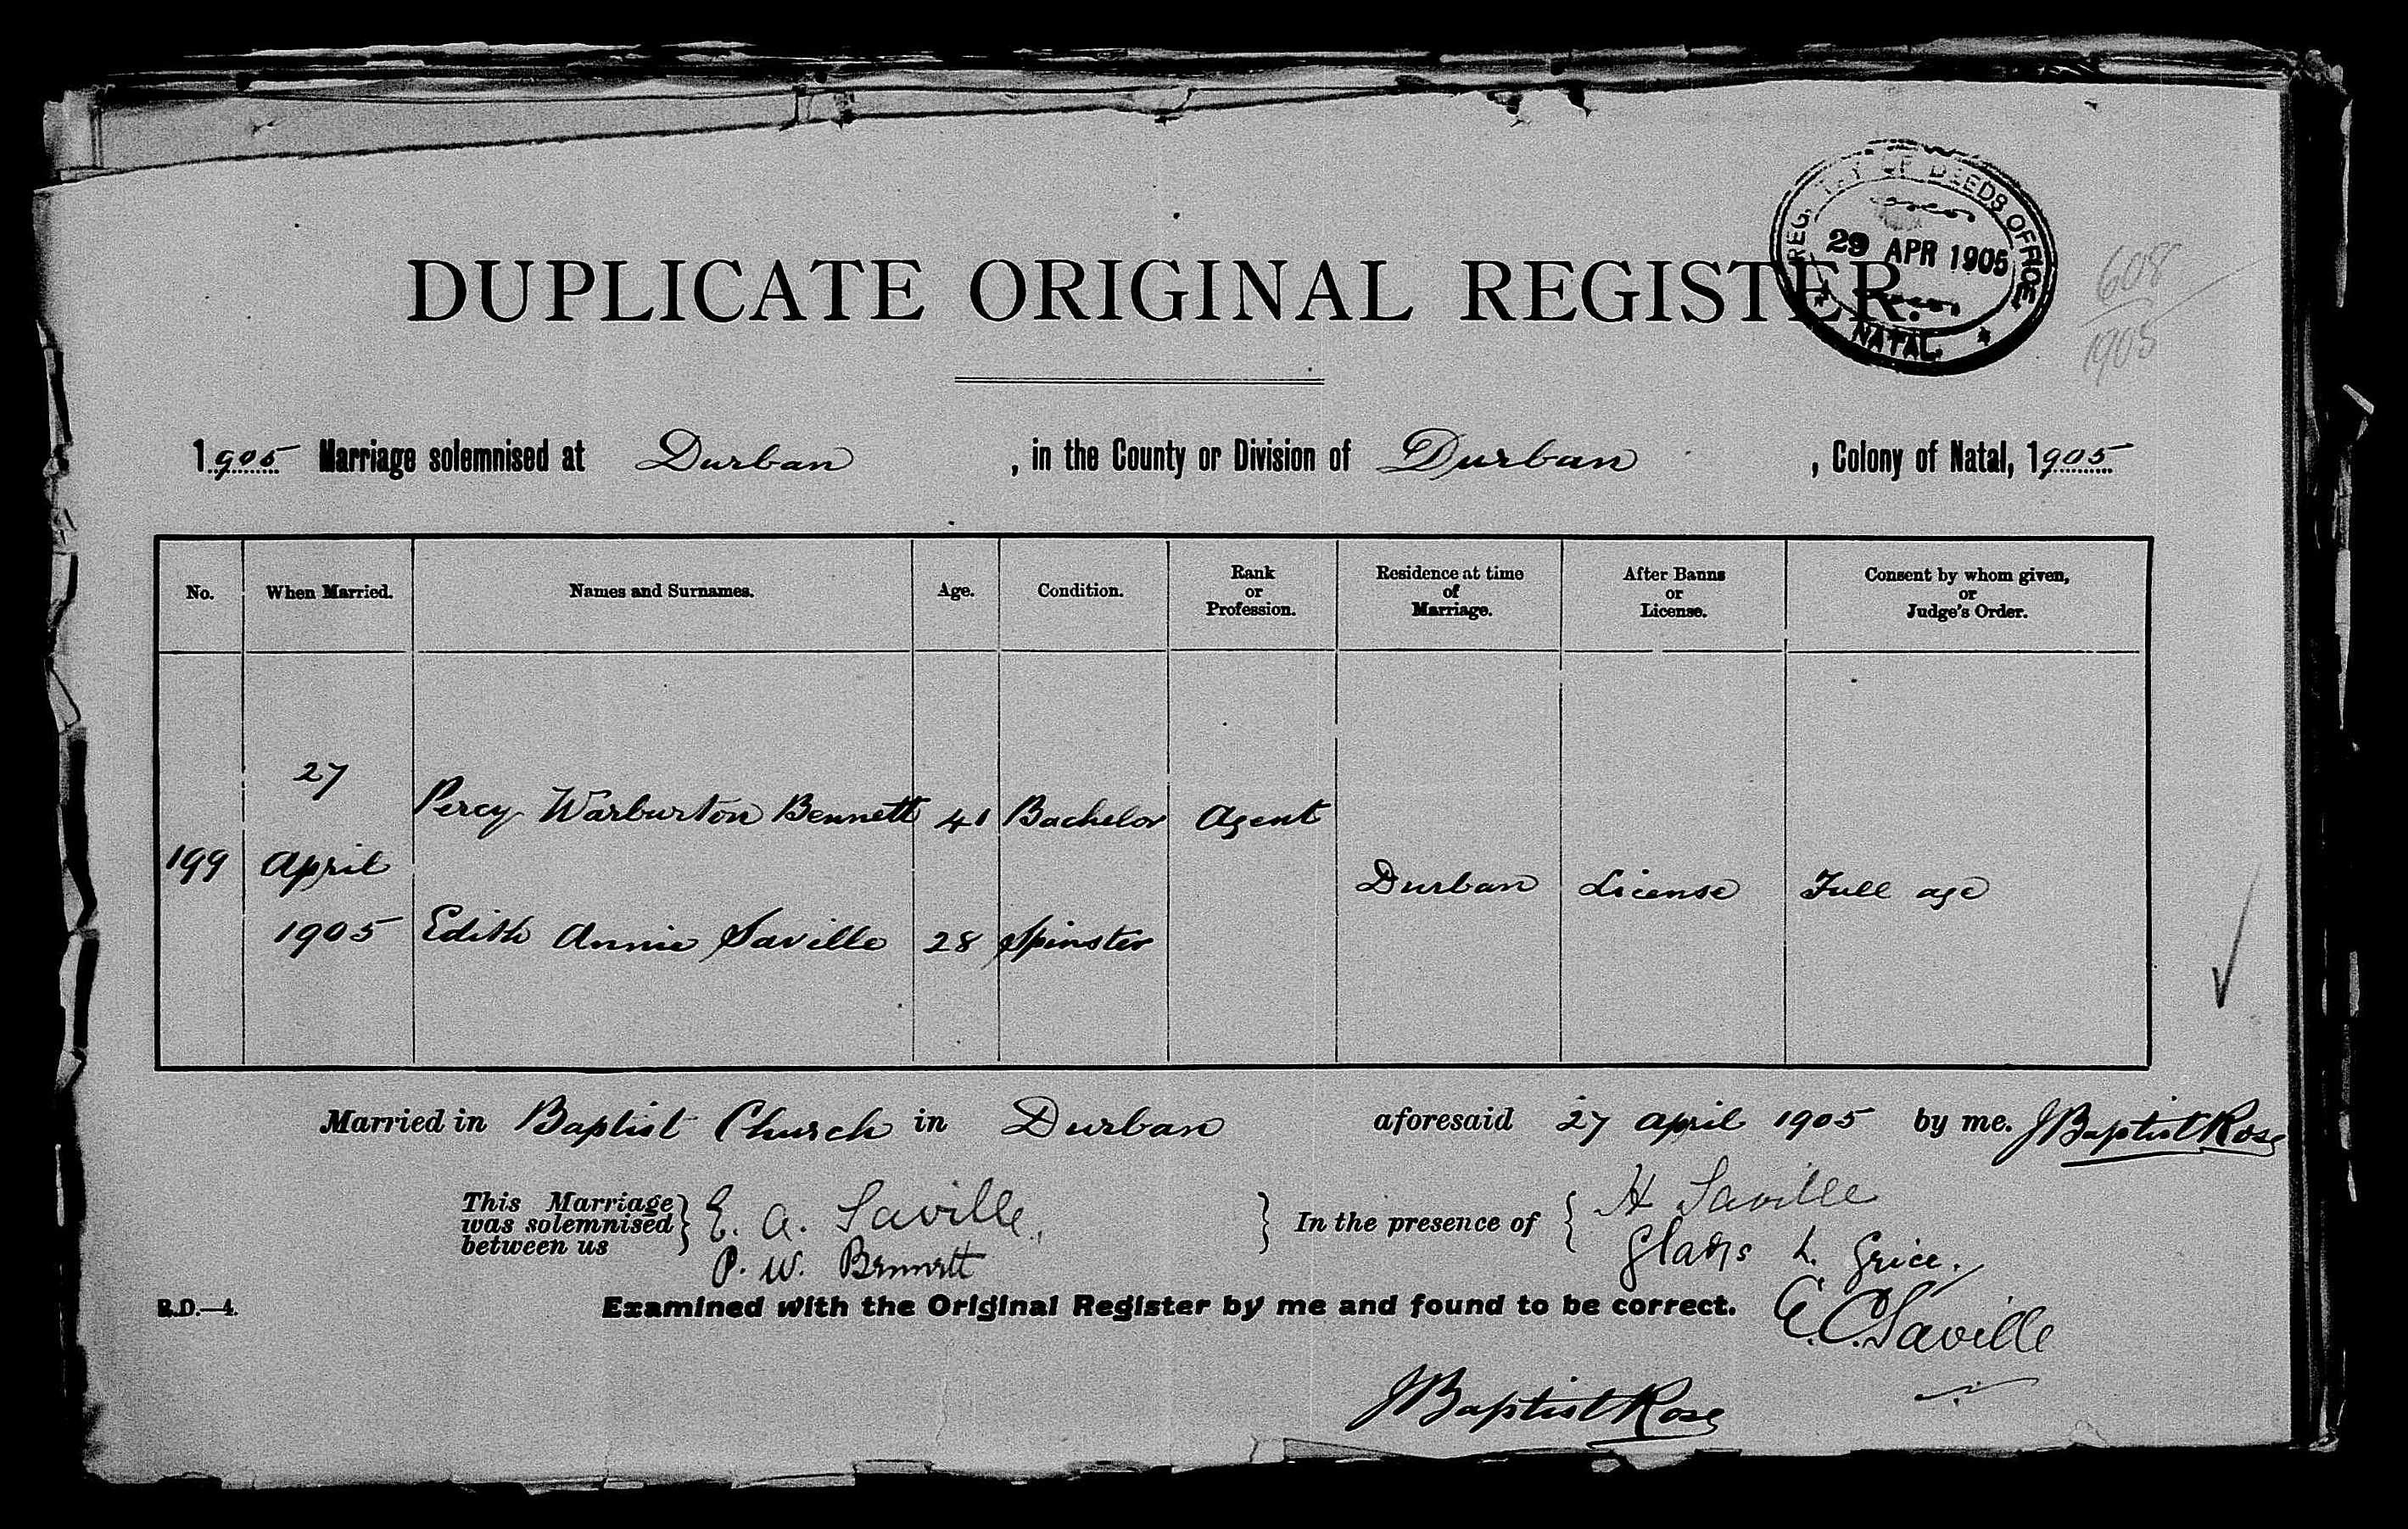 REGISTRY OF DEEDS OFFICE
29 APR 1905
NATAL.
608
1905
DUPLICATE ORIGINAL REGISTER.
1905 Marriage solemnised at Durban, in the County or Division of Durban, Colony of Natal, 1905
No. When Married. Names and Surnames. Age. Condition. Rank or Profession. Residence at time of Marriage. After Banns or License. Consent by whom given, or Judge's Order.
27
Percy Warburton Bennett 41 Bachelor Agent
199 April
Durban License Full age
1905 Edith Annie Saville 28 Spinster
Married in Baptist Church in Durban aforesaid 27 April 1905 by me. J Baptist Rose
This Marriage was solemnised between us } E. A. Saville. } In the presence of { H Saville
P. W. Bennett
Gladys L. Grice.
R.D.—4. Examined with the Original Register by me and found to be correct. E. C. Saville
J Baptist Rose